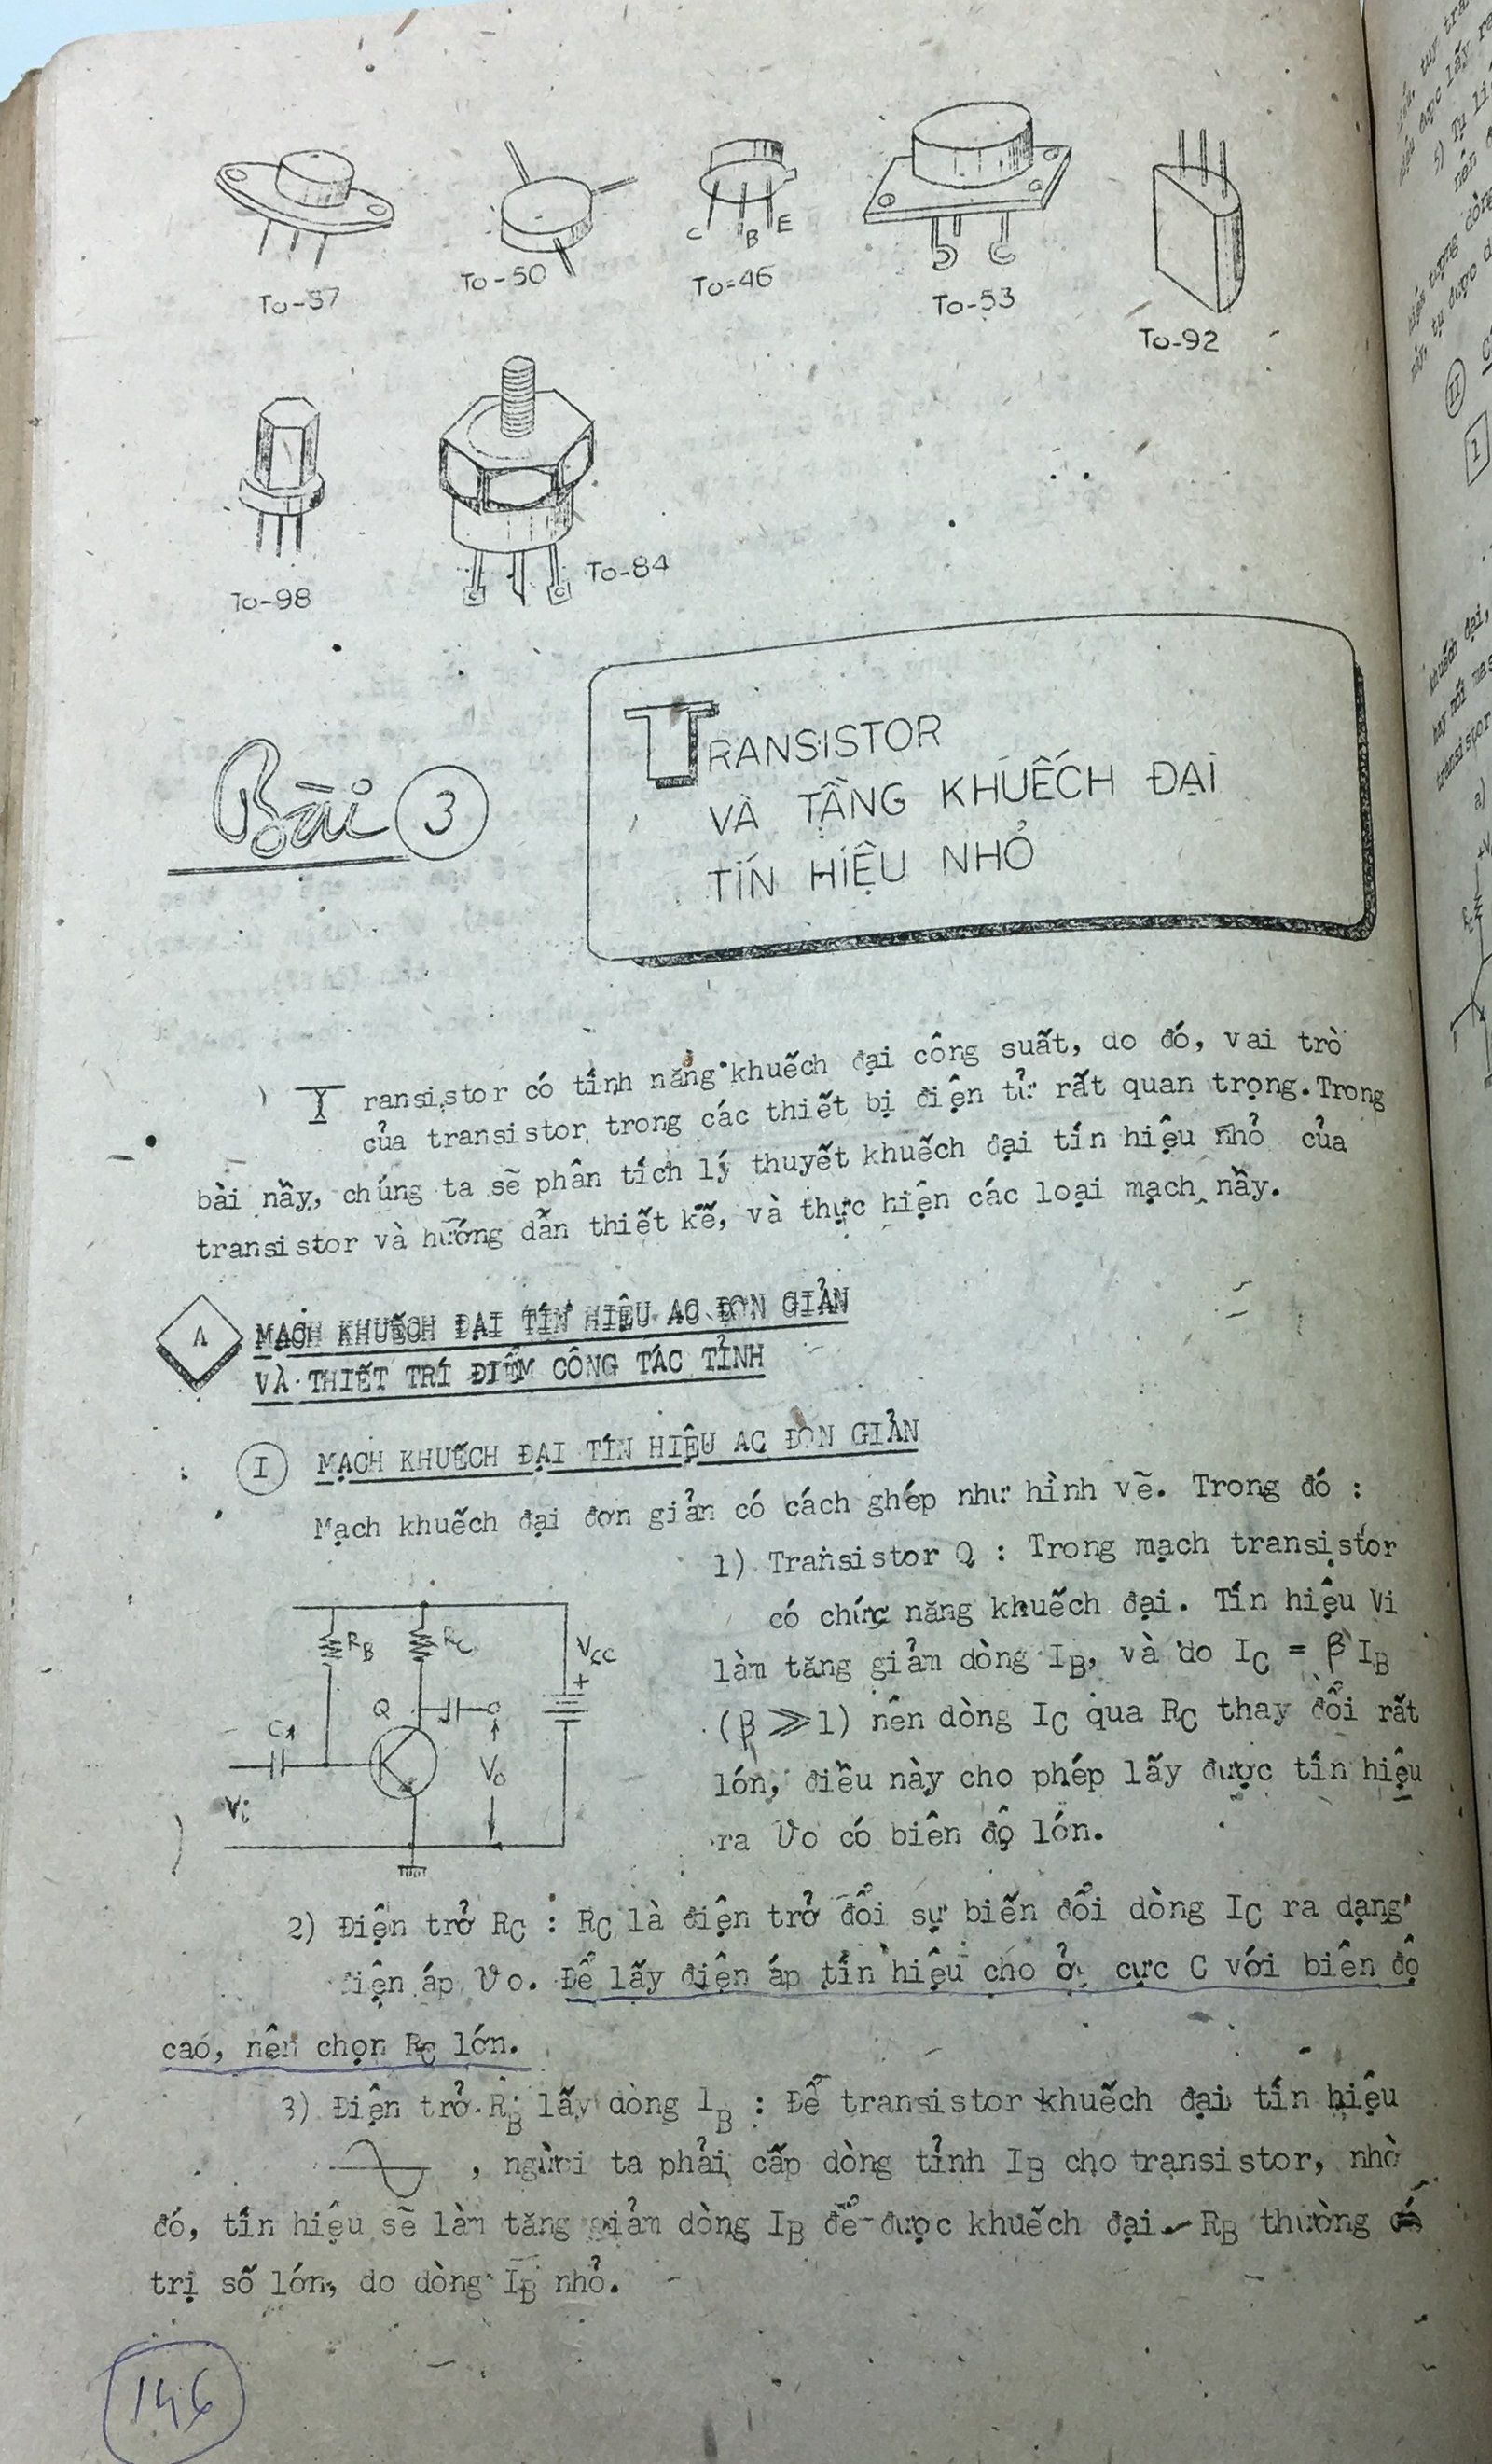 To-37
To-50
C B E
To-46
To-53
To-92
To-98
To-84
Bài 3
TRANSISTOR
VÀ TẦNG KHUẾCH ĐẠI
TÍN HIỆU NHỎ
Transistor có tính năng khuếch đại công suất, do đó, vai trò
của transistor trong các thiết bị điện tử rất quan trọng. Trong
bài nầy, chúng ta sẽ phân tích lý thuyết khuếch đại tín hiệu nhỏ của
transistor và hướng dẫn thiết kế, và thực hiện các loại mạch nầy.
A MẠCH KHUẾCH ĐẠI TÍN HIỆU AC ĐƠN GIẢN
VÀ THIẾT TRÍ ĐIỂM CÔNG TÁC TỈNH
I MẠCH KHUẾCH ĐẠI TÍN HIỆU AC ĐƠN GIẢN
Mạch khuếch đại đơn giản có cách ghép như hình vẽ. Trong đó :
1) Transistor Q : Trong mạch transistor
có chức năng khuếch đại. Tín hiệu Vi
làm tăng giảm dòng IB, và do IC = β IB
(β ≫ 1) nên dòng IC qua RC thay đổi rất
lớn, điều này cho phép lấy được tín hiệu
ra Vo có biên độ lớn.
RB RC VCC
+
Q
C1
Vo
Vi
2) Điện trở RC : RC là điện trở đổi sự biến đổi dòng IC ra dạng
điện áp Vo. Để lấy điện áp tín hiệu cho ở cực C với biên độ
cao, nên chọn RC lớn.
3) Điện trở RB lấy dòng IB : Để transistor khuếch đại tín hiệu
, người ta phải cấp dòng tỉnh IB cho transistor, nhờ
đó, tín hiệu sẽ làm tăng giảm dòng IB để được khuếch đại. RB thường có
trị số lớn, do dòng IB nhỏ.
146